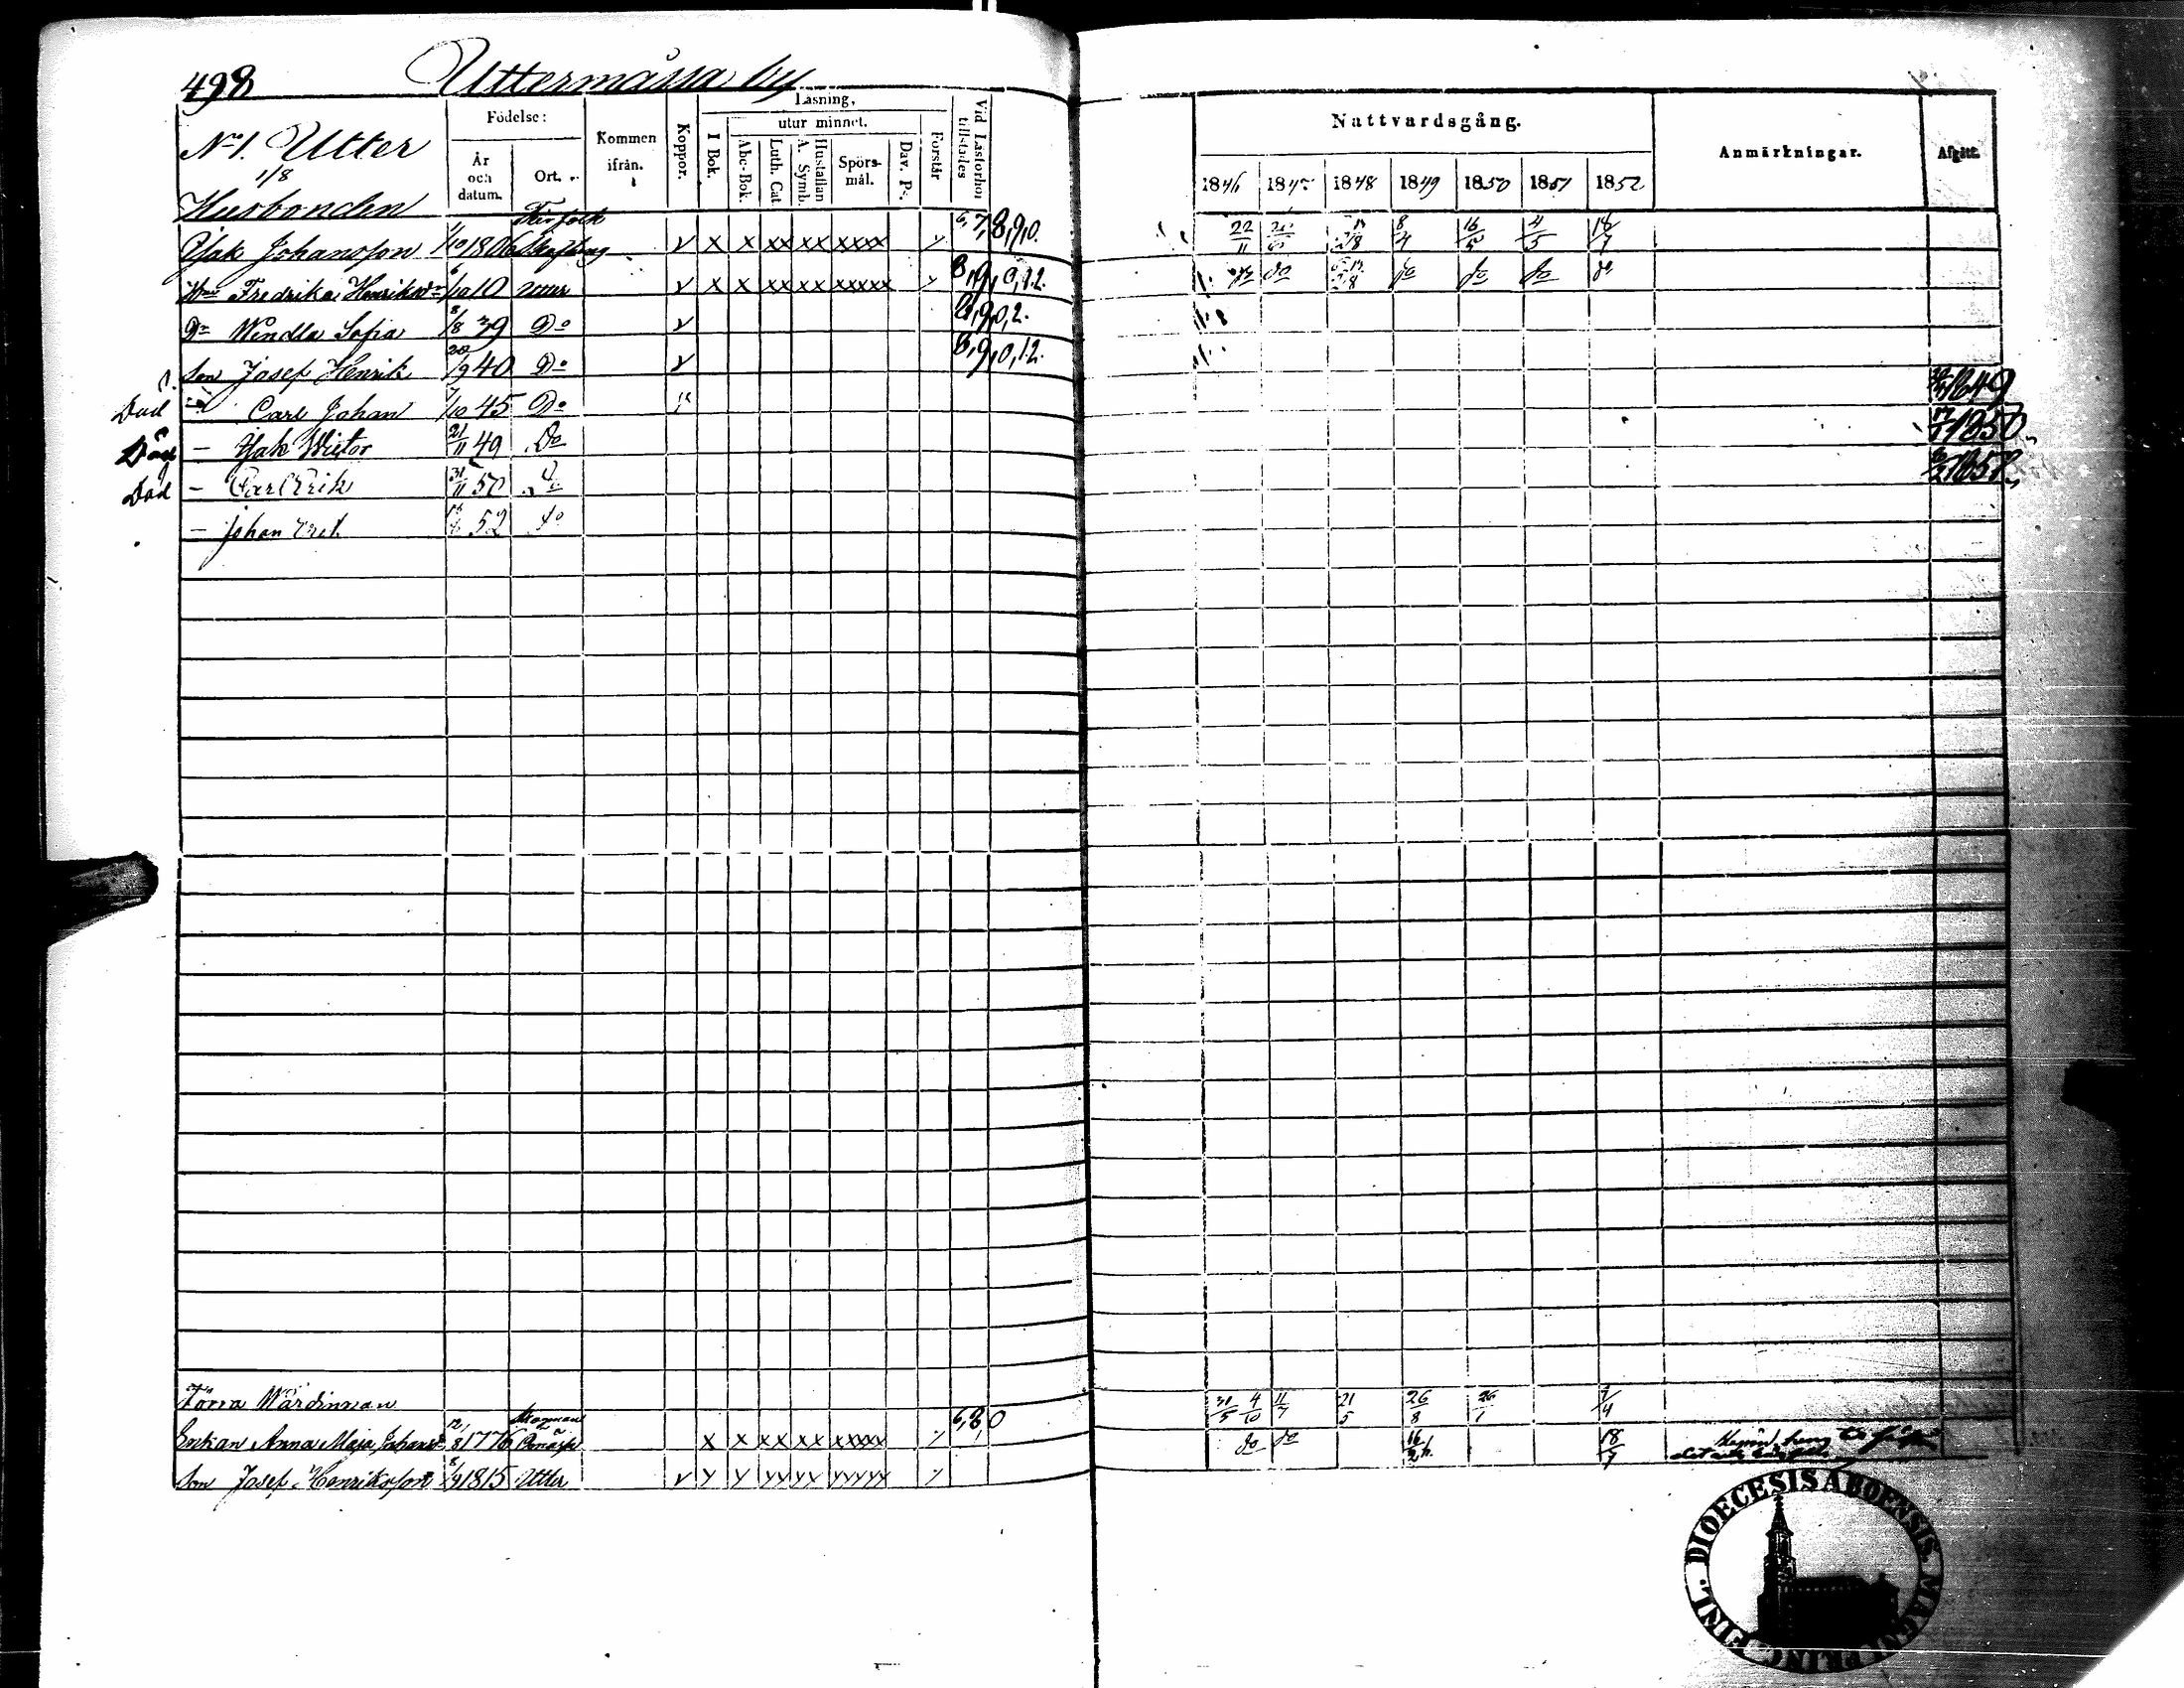 498 Uttermåssa by
No 1. Utter
1/8
Födelse:
År och datum.
Ort.
Kommen ifrån.
Koppor.
Läsning,
I Bok.
utur minnet.
Abc-Bok.
Luth. Cat
Hustaflan A. Symb.
Spörsmål.
Dav. Ps.
Förstår
Vid Läsförhör tillstädes
Nattvardsgång.
1846 1847 1848 1849 1850 1851 1852
Anmärkningar.
Afgått.
Husbonden
Isak Johansson 1/10 1806 v x x xx xx xxxx 6,7,8,9,0. 22/11 8/4 16/5 4/5 18/7
Fredrika Henriksdr 6/10 10 Utter v x x xx xx xxxxx 8,9,0,1.2. do do do do
Dr Wendla Sofia 8/8 39 Do v 8,9,0,2.
Son Josef Henrik 20/9 40 Do v 8,9,0,1.2.
Död Carl Johan 7/10 45 Do 1849
Död — Isak Wictor 21/11 49 Do 1850
Död — Carl Erik 50 Do 1852
— Johan Erik 52 do
Förra Wärdinnan
Enkan Anna Maja Johansdr 12/8 1776 x x xx xx xxxxx 6,8,0 31/5 4/10 11/7 21/5 26/8 26/1 7/4
Son Josef Henriksson 8/9 1815 Utter v y y yy yy yyyyy do do 18/7
DIOECESIS ABOENSIS.
FINL.